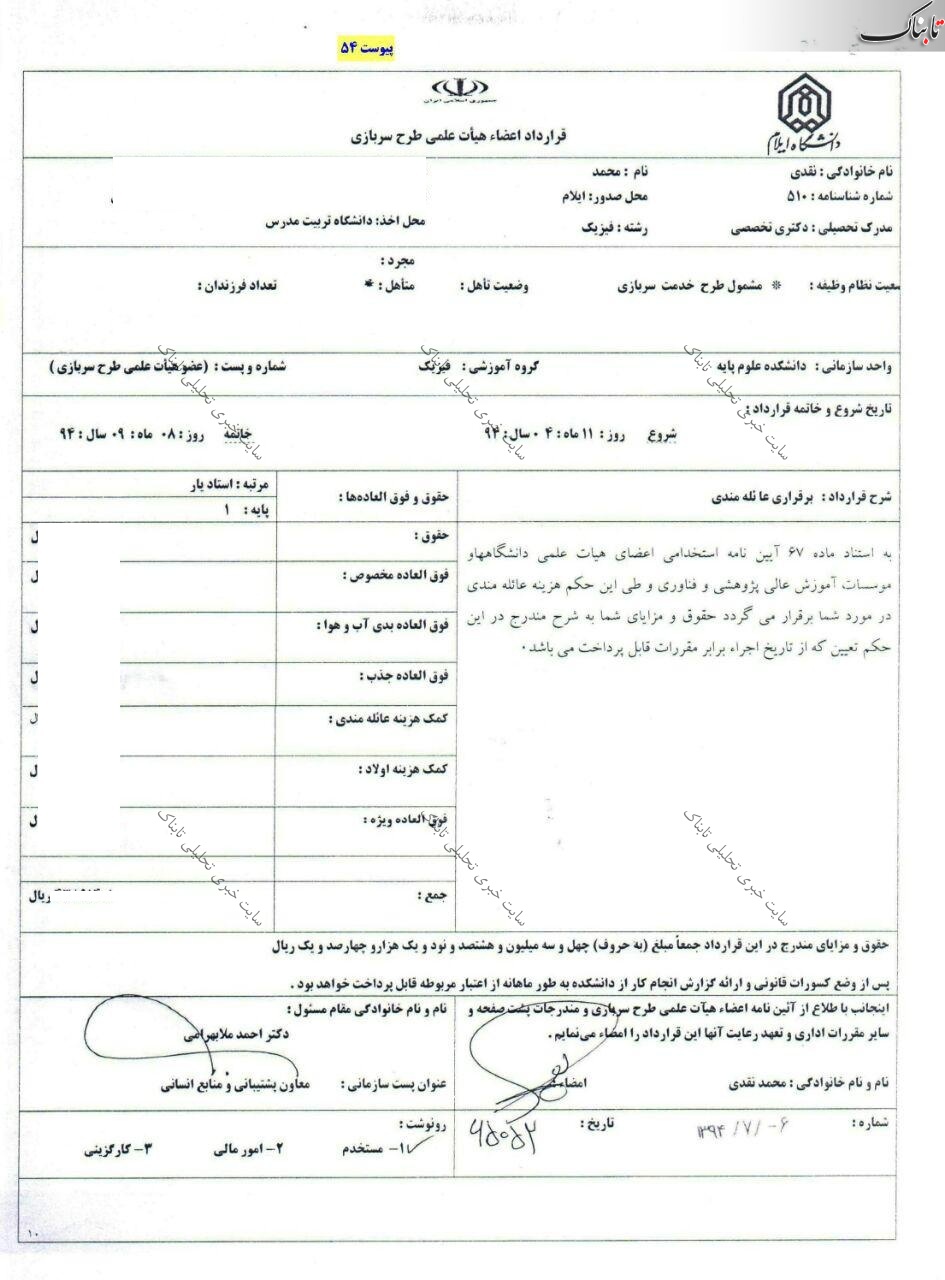 تابناک
پیوست ۵۴
جمهوری اسلامی ایران
دانشگاه ایلام
قرارداد اعضاء هیأت علمی طرح سربازی
نام خانوادگی : نقدی نام : محمد
شماره شناسنامه : ۵۱۰ محل صدور : ایلام
مدرک تحصیلی : دکتری تخصصی رشته : فیزیک محل اخذ: دانشگاه تربیت مدرس
مجرد :
عیت نظام وظیفه : * مشمول طرح خدمت سربازی وضعیت تأهل : متأهل : * تعداد فرزندان :
واحد سازمانی : دانشکده علوم پایه گروه آموزشی : فیزیک شماره و پست : (عضو هیأت علمی طرح سربازی )
تاریخ شروع و خاتمه قرارداد :
شروع روز : ۱۱ ماه : ۰۴ سال : ۹۴ خاتمه روز : ۰۸ ماه : ۰۹ سال : ۹۴
شرح قرارداد : برقراری عا ئله مندی
به استناد ماده ۶۷ آیین نامه استخدامی اعضای هیات علمی دانشگاههاو
موسسات آموزش عالی پژوهشی و فناوری و طی این حکم هزینه عائله مندی
در مورد شما برقرار می گردد حقوق و مزایای شما به شرح مندرج در این
حکم تعیین که از تاریخ اجراء برابر مقررات قابل پرداخت می باشد۰
حقوق و فوق العاده‌ها : مرتبه : استاد یار
پایه : ۱
حقوق : ل
فوق العاده مخصوص : ل
فوق العاده بدی آب و هوا : ل
فوق العاده جذب : ل
کمک هزینه عائله مندی : ل
کمک هزینه اولاد : ل
فوق العاده ویژه : ل
جمع : ریال
حقوق و مزایای مندرج در این قرارداد جمعاً مبلغ (به حروف) چهل و سه میلیون و هشتصد و نود و یک هزارو چهارصد و یک ریال
پس از وضع کسورات قانونی و ارائه گزارش انجام کار از دانشکده به طور ماهانه از اعتبار مربوطه قابل پرداخت خواهد بود .
اینجانب با طلاع از آئین نامه اعضاء هیأت علمی طرح سربازی و مندرجات پشت صفحه و
سایر مقررات اداری و تعهد رعایت آنها این قرارداد را امضاء می‌نمایم .
نام و نام خانوادگی : محمد نقدی امضاء :
نام و نام خانوادگی مقام مسئول :
دکتر احمد ملابهرامی
عنوان پست سازمانی : معاون پشتیبانی و منابع انسانی
شماره : ۱۳۹۴/۷/-۶ تاریخ :
رونوشت :
۱- مستخدم ۲- امور مالی ۳- کارگزینی
۱۰
سایت خبری تحلیلی تابناک
سایت خبری تحلیلی تابناک
سایت خبری تحلیلی تابناک
سایت خبری تحلیلی تابناک
سایت خبری تحلیلی تابناک
سایت خبری تحلیلی تابناک